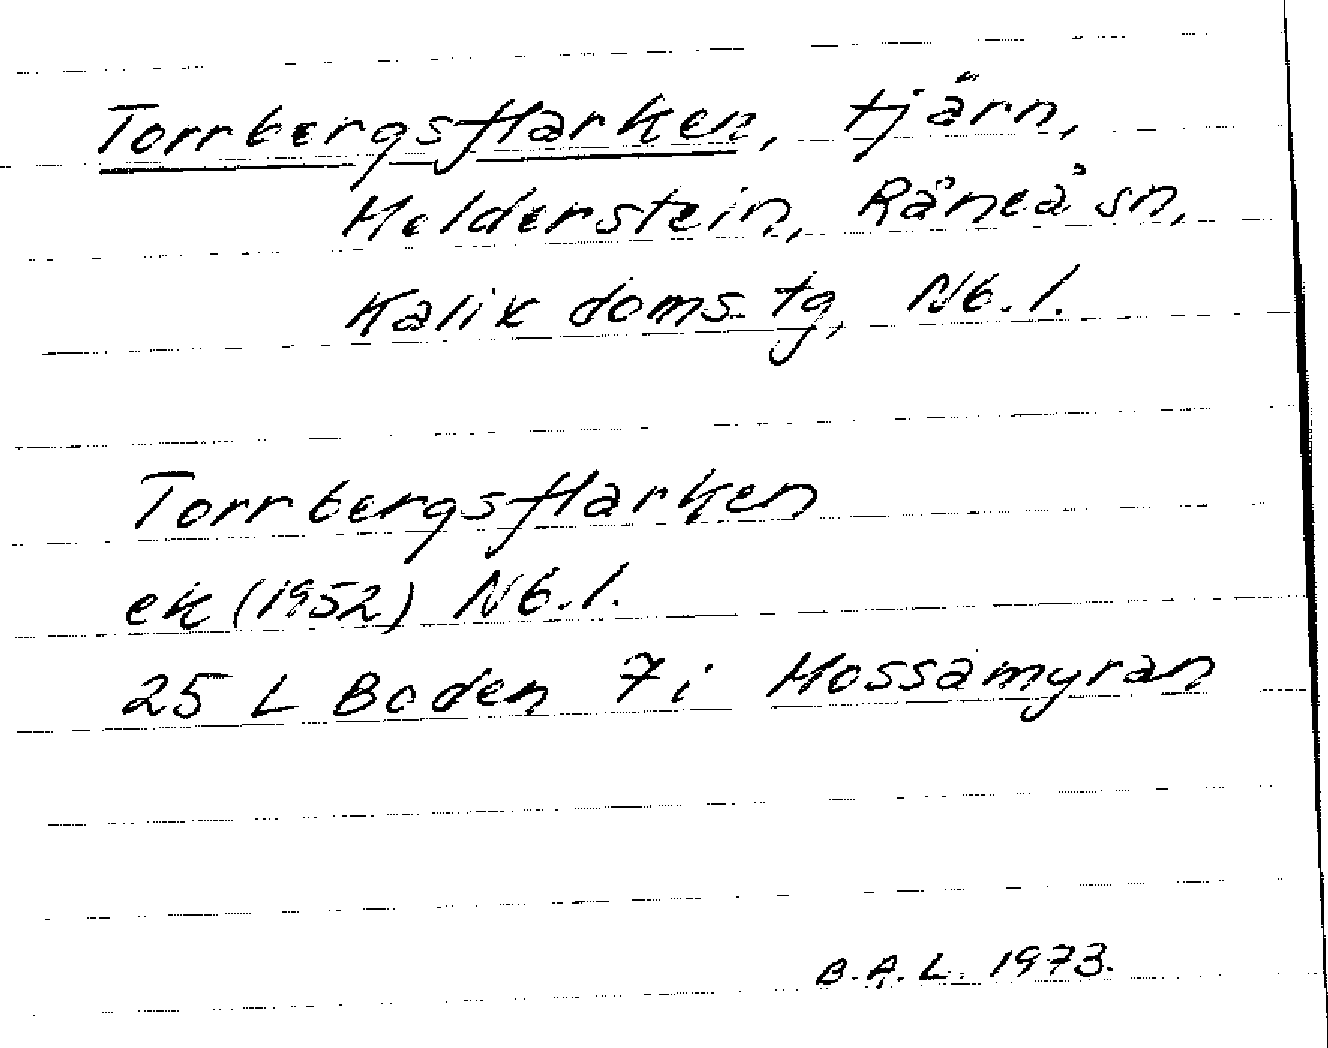 Torrbergsflarken, tjärn,
Melderstein, Råneå sn,
Kalix doms. tg, Nb. l.
Torrbergsflarken
ek (1952) Nb. l.
25 L Boden 7 i Mossamyran
B. A. L. 1973.